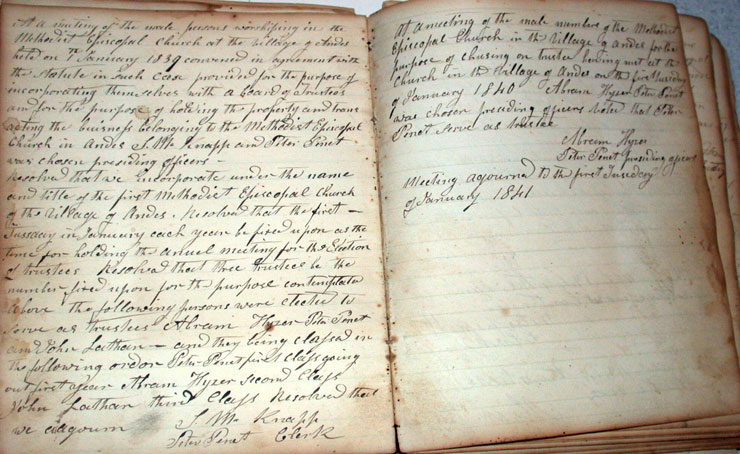 At a meeting of the male persons worshiping in the
Methodist Episcopal Church at the village of Andes
held on 7 January 1839 convened in agreement with
the Statute in Such Case provided for the purpose of
incorporating themselves with a board of Trustees
and for the purpose of holding the property and trans
acting the buisness belonging to the Methodist Episcopal
Church in Andes S. M. Knapp and Peter Penet
was chosen presiding officers —
Resolved that we Incorporate under the name
and title of the first Methodist Episcopal Church
of the Village of Andes. Resolved that the first —
Tussday in January each year be fixed upon as the
time for holding the anuel meeting for the Election
of trustees Resolved that three trustees be the
number fixed upon for the purpose contemplated
above the following persons were elected to
Serve as trustees Abram Hyzer Peter Penet
and John Lathan — and they being classd in
the following order Peter Penet first Class going
out first year Abram Hyzer second Class
John Lathan third Class Resolved that
we adgourn
S. M. Knapp
Peter Penet Clerk
At a meeting of the male members of the Methodist
Episcopal Church in the Village of Andes for the
purpose of chusing on trustee having met at the
Church in the Village of Andes on the first Tusday
of January 1840 Abram Hyzer Peter Penet
was chosen presiding officers Voted that Peter
Penet Serve as trustee
Abram Hyzer
Peter Penet presiding officers
Meeting agourned to the first Tusedcay
of January 1841